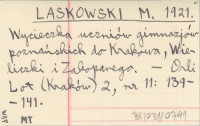 LASKOWSKI M. 1921.
Wycieczka uczniów gimnazjów
poznańskich do Krakowa, Wie-
liczki i Zakopanego. — Orli
Lot (Kraków) 2, nr 11: 139-
-141.
MT